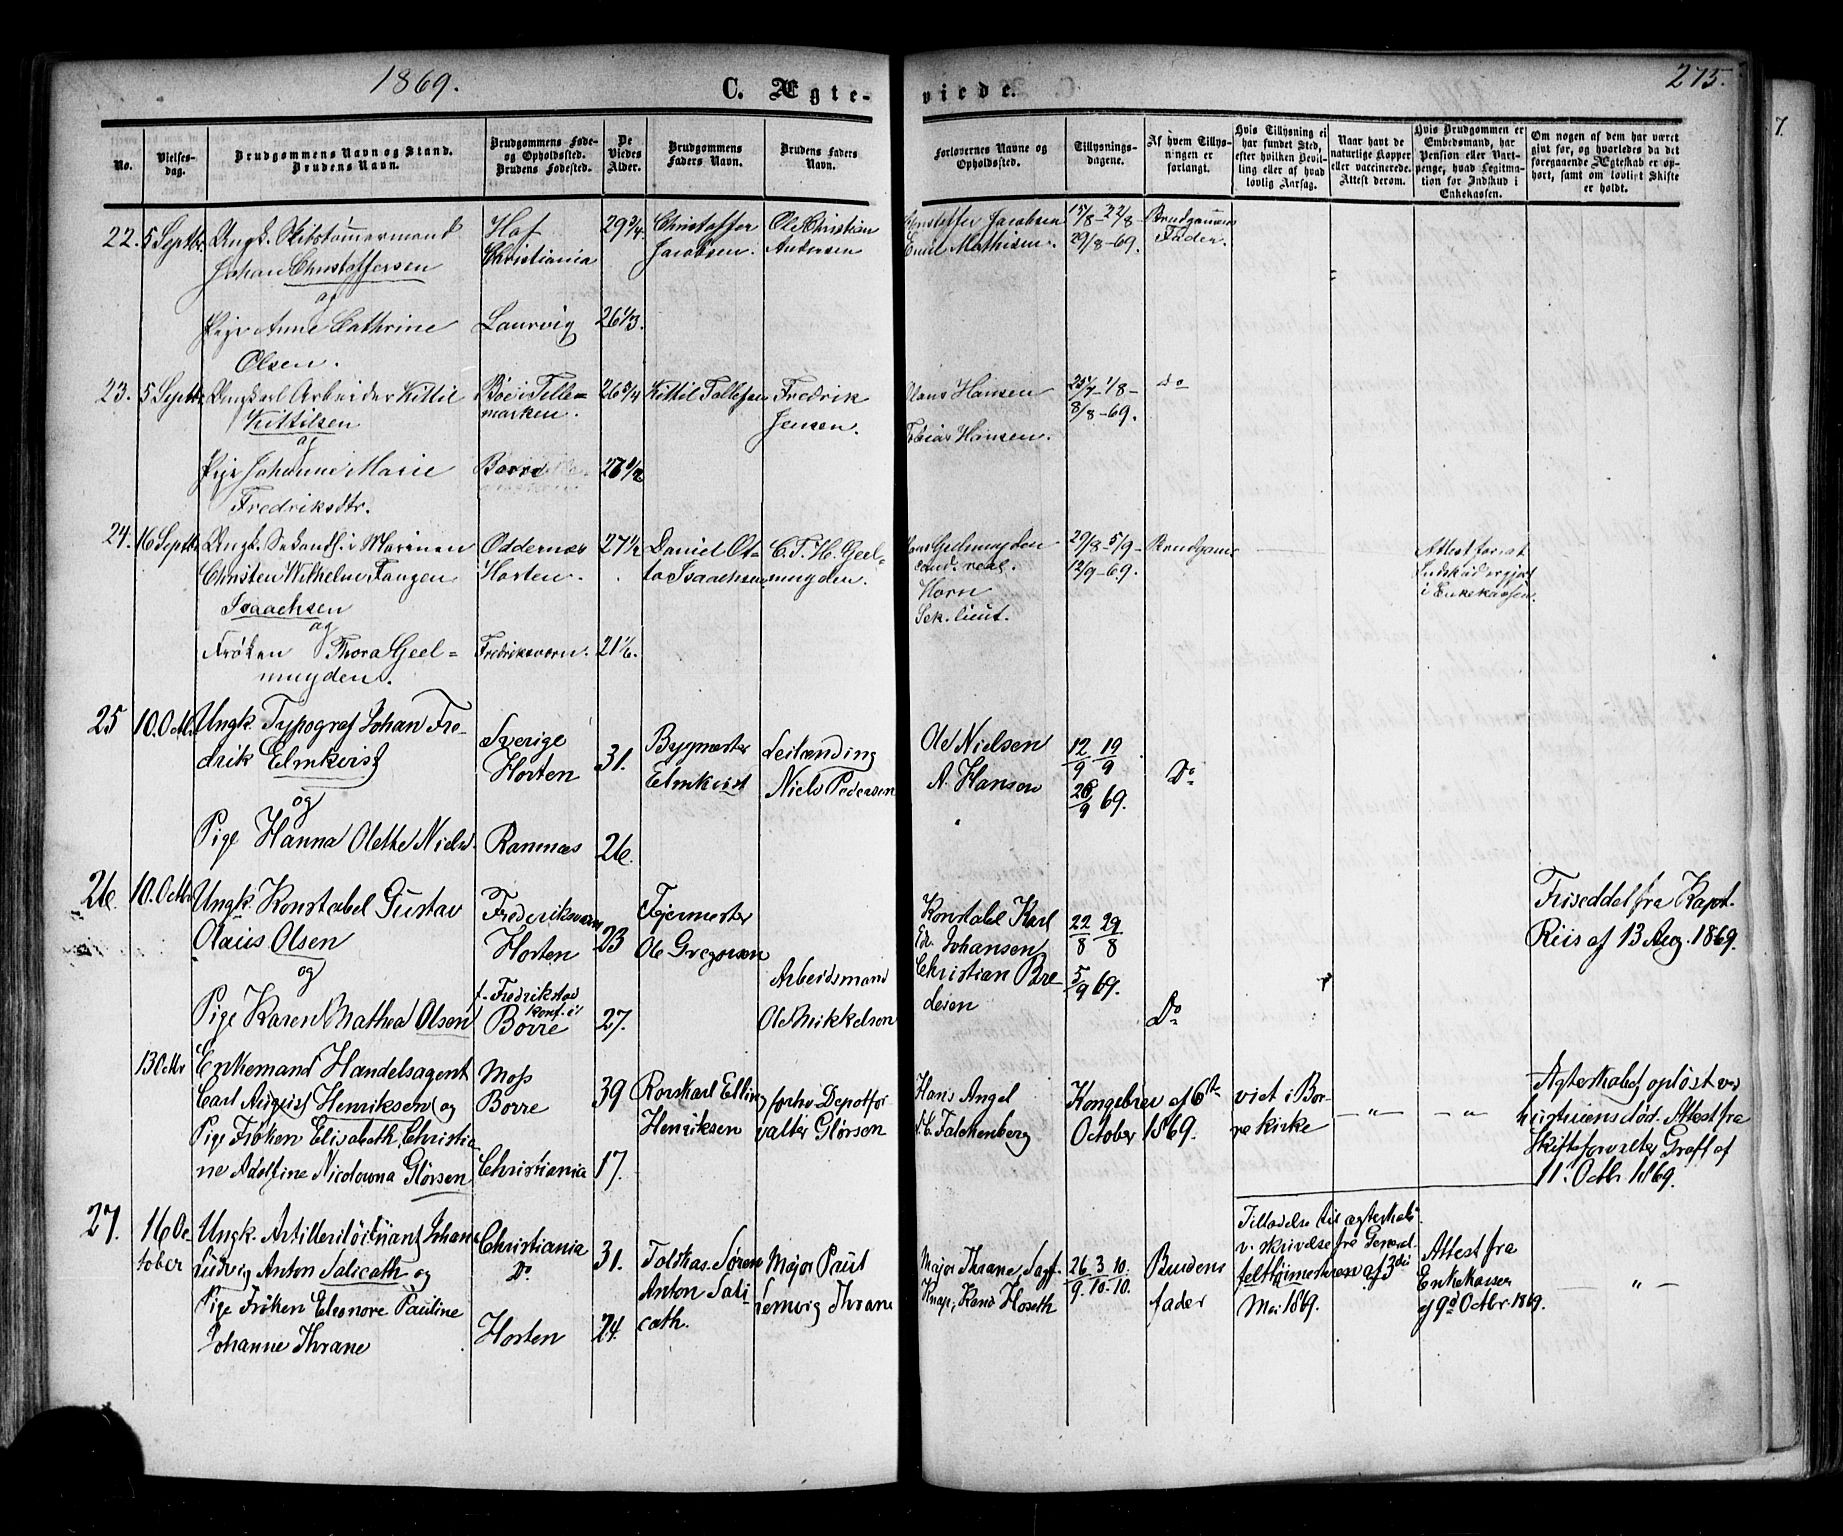 1869.
C. Ægte-
viede.
275.
No.
Vielses-
dag.
Brudgommens Navn og Stand.
Brudens Navn.
Brudgommens Føde-
og Opholdssted.
Brudens Fødested.
De
Viedes
Alder.
Brudgommens
Faders Navn.
Brudens Faders
Navn.
Forlovernes Navne og
Opholdssted.
Tillysnings-
dagene.
Af hvem Tillys-
ningen er
forlangt.
Hvis Tillysning ei
har fundet Sted,
efter hvilken Bevil-
ling eller af hvad
lovlig Aarsag.
Naar havt de
naturlige Kopper
eller vaccinerede.
Attest derom.
Hvis Brudgommen er
Embedsmand, har
Pension eller Vart-
penge, hvad Legitima-
tion for Indskud i
Enkekassen.
Om nogen af dem har været
givt før, og hvorledes da det
foregaaende Ægteskab er op-
hørt, samt om lovligt Skifte
er holdt.
22. 5 Septbr. Ungk. Skibstømmermand
Johan Christoffersen
og
Pige Anne Cathrine
Olsen.
Hof
Christiania
Laurvig
29 3/4.
26 1/3.
Christoffer
Jacobsen.
Ole Christian
Andersen
Christoffer Jacobsen
Emil Mathisen.
15/8 - 22/8
29/8 - 69.
Brudgommens
Fader.
23. 5 Septbr. Ungkarl Arbeider Kittil
Kittilsen
og
Pige Johanne Marie
Fredriksdtr.
Bøe i Telle-
marken.
Borre
26 5/4
27 1/2
Kittil Tollefsen
Fredrik
Jensen.
Olaus Hansen
Tobias Hansen.
25/7 - 1/8 -
8/8 - 69.
do
24. 16 Septbr. Ungk. Sekondl. i Marinen
Christen Wilhelm Fangen
Isaachsen
og
Frøken Thora Geel-
muyden.
Oddernæs
Horten.
Fredriksværn.
27 1/2
21 1/6.
Daniel Ot-
to Isaachsen
C. T. H. Geel-
muyden.
Hans Geelmuyden
cand. real.
Horn
Sek. lieut.
29/8 - 5/9 -
12/9 - 69.
Brudgomm
Attest for at
Indskud er gjort
i Enkekassen.
25 10. Octbr Ungk. Typograf Johan Fre-
drik Elmkvist
og
Pige Hanna Olette Niels.
Sverige
Horten
Ramnæs
31.
26.
Bygmester
Elmkvist
Leilænding
Niels Pedersen
Ole Nielsen
A. Hansen
12/9 19/9
26/9 69.
Do
26. 10. Octbr Ungk. Konstabel Gustav
Olaus Olsen
og
Pige Karen Mathea Olsen
Frederiksværn
Horten
f. Fredrikstad
konf. i
Borre
23
27.
Fyrmester
Ole Gregersen
Arbeidsmand
Ole Mikkelsen
Konstabel Karl
Edv. Johansen
Christian Bre
desen
22/8 29/8
5/9 69.
Do
Friseddel fra Kapt.
Riis af 13 Aug. 1869.
13 Octbr Enkemand Handelsagent
Carl August Henriksen og
Pige Frøken Elisabeth Christia
ne Adolfine Nicolowna Glørsen
Moss
Borre
Christiania
39
17.
Rorskarl Elling
Henriksen
forhv. Depotfor
valter Glørsen
Hans Angel
Falckenberg
Kongebrev af 6te
October 1869.
viet i Bor-
re kirke
— „ —
— „ —
Ægteskabet opløst ved
hustruens død. Attest fra
Skifteforvalter Graff af
11. Octbr. 1869.
27. 16 Oc
tober
Ungk. Artilleriløitnant Johan
Ludvig Anton Salicath og
Pige Frøken Eleonore Pauline
Johanne Thrane
Christiania
Do
Horten
31.
24.
Toldkas. Søren
Anton Sali
cath.
Major Paul
Lemvig Thrane
Major Thrane,
Knap, Hoseth
26/9. 3/10. 10/10.
Brudens
fader
Tilladelse til ægteskab
v. skrivelse fra General-
felttøimesteren af 3die
Mai 1869.
Attest fra
Enkekassen
af 9de Octbr. 1869.
„ —
7.